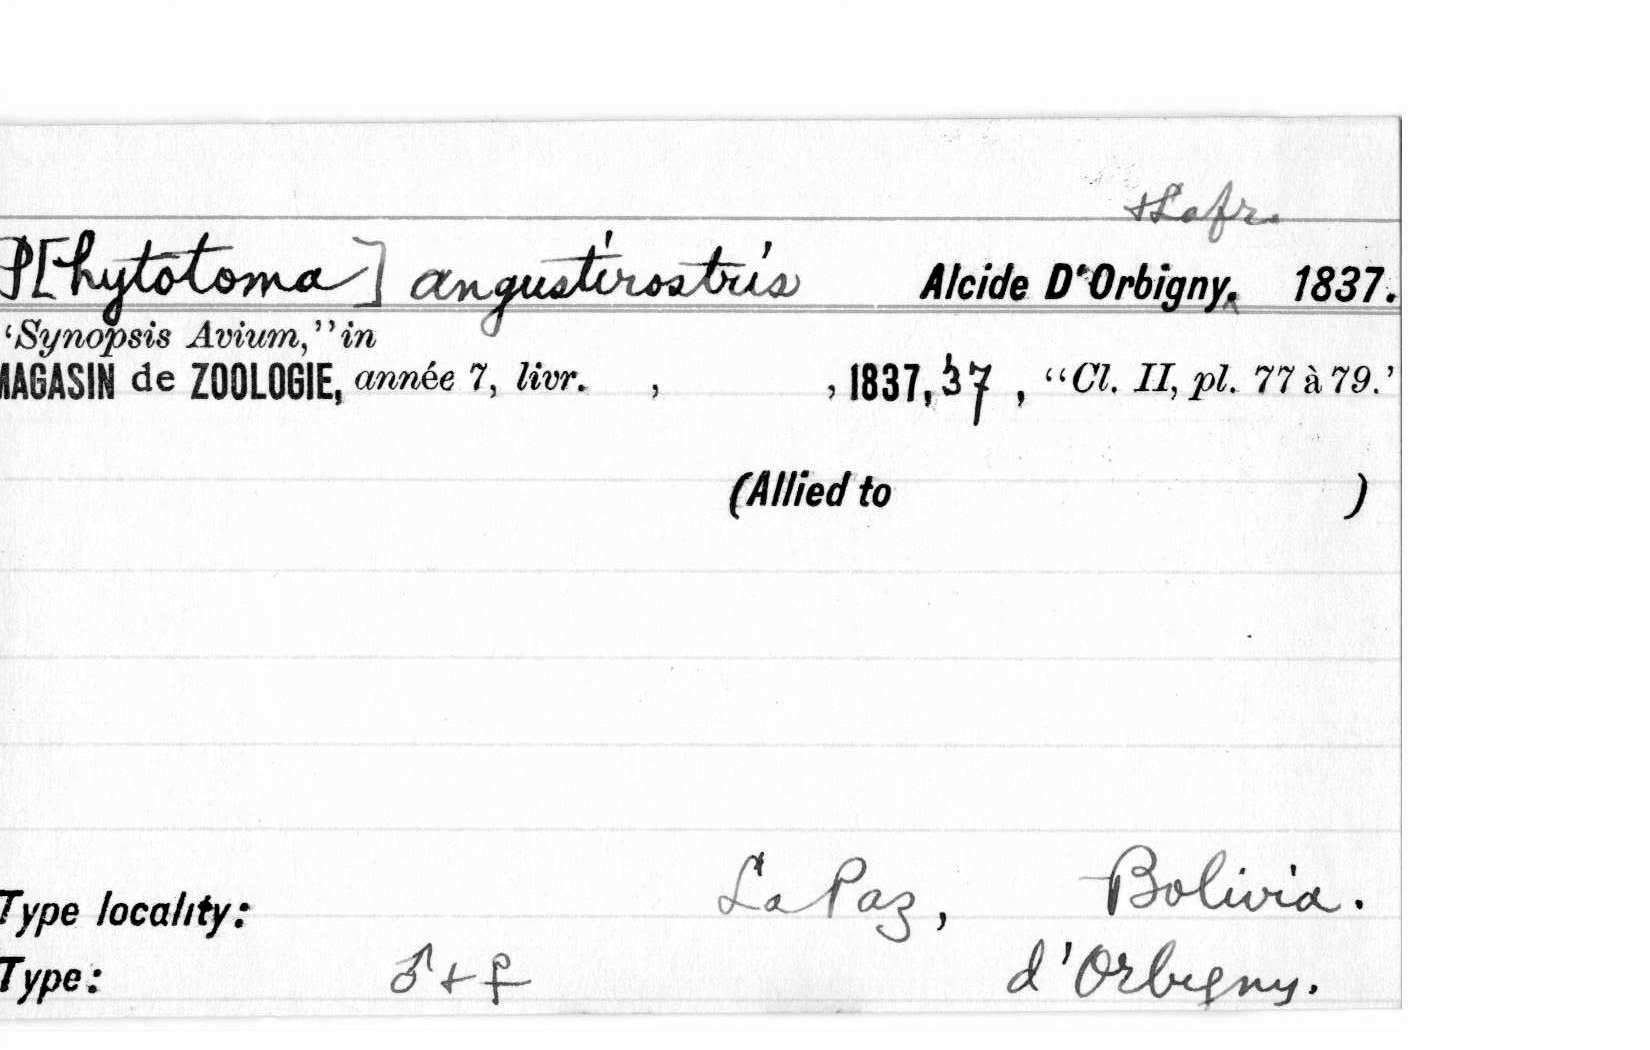 +Lafr.
P[hytotoma] angustirostris Alcide D'Orbigny. 1837.
‘Synopsis Avium,’’ in
MAGASIN de ZOOLOGIE, année 7, livr. , , 1837, 37 , “Cl. II, pl. 77 à 79.’
(Allied to )
Type locality: La Paz, Bolivia.
Type: ♂ + ♀ d'Orbigny.